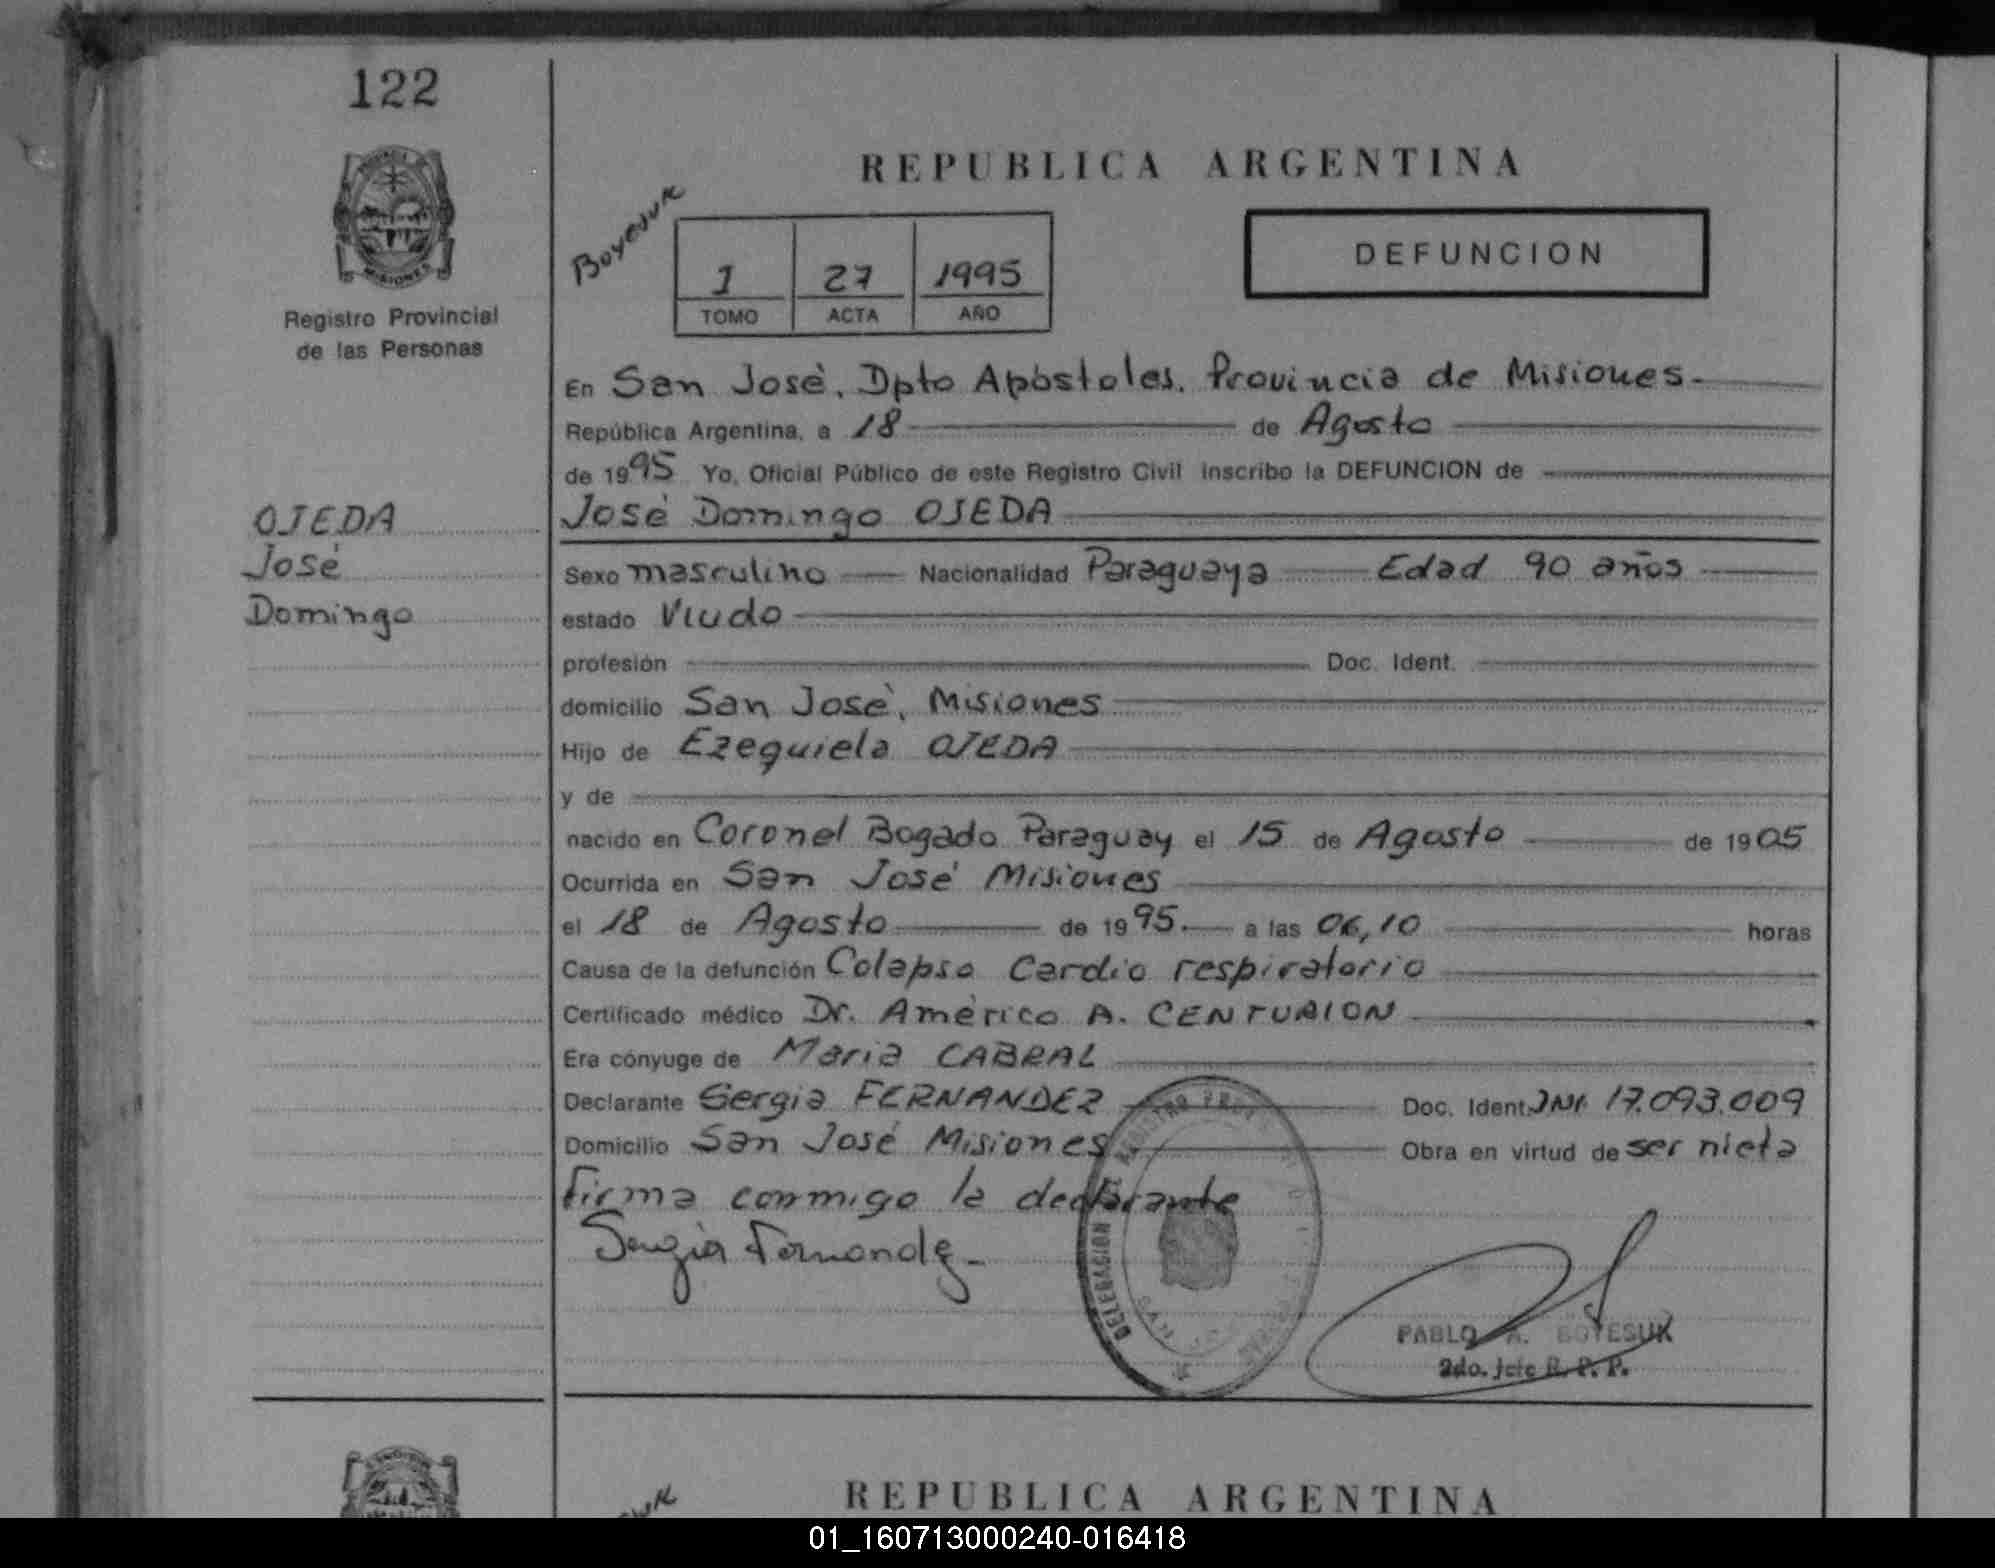 122
Registro Provincial
de las Personas
OJEDA
José
Domingo
REPUBLICA ARGENTINA
Boyesuk
DEFUNCION
1 27 1995
TOMO ACTA AÑO
En San José, Dpto Apóstoles. Provincia de Misiones.
República Argentina, a 18 de Agosto
de 1995 Yo, Oficial Público de este Registro Civil inscribo la DEFUNCION de
José Domingo OJEDA
Sexo masculino Nacionalidad Paraguaya Edad 90 años
estado Viudo
profesión Doc. Ident.
domicilio San José, Misiones
Hijo de Ezequiela OJEDA
y de
nacido en Coronel Bogado Paraguay el 15 de Agosto de 1905
Ocurrida en San José Misiones
el 18 de Agosto de 1995. a las 06,10 horas
Causa de la defunción Colapso Cardio respiratorio
Certificado médico Dr. Américo A. CENTURION
Era cónyuge de Maria CABRAL
Declarante Sergia FERNANDEZ Doc. Ident. DNI. 17.093.009
Domicilio San José Misiones Obra en virtud de ser nieta
Firma conmigo la declarante
Sergia Fernandez
DELEGACION
PABLO A. BOYESUK
2do. Jefe R. P. P.
REPUBLICA ARGENTINA
01_160713000240-016418